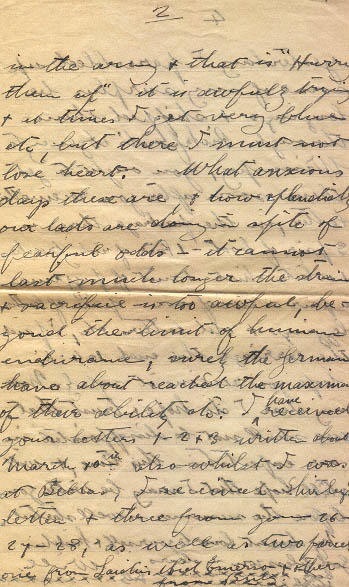 2
in the army & that is "Hurry
them up" it is awfully trying
& at times I get very blue
etc, but there I must not
lose heart. What anxious
days these are & how splendidly
our lads are doing in spite of
fearful odds - it cannot
last much longer the strain
& sacrifice is too awful, be-
yond, the limit of human
endurance, surely the Germans
have about reached the maximum
of their ability etc, I have received
your letters 1-2&3 written about
March also whilst I was
at I received Shirley's
letter & three from you 26-
27-28, as well as two from
one from & other